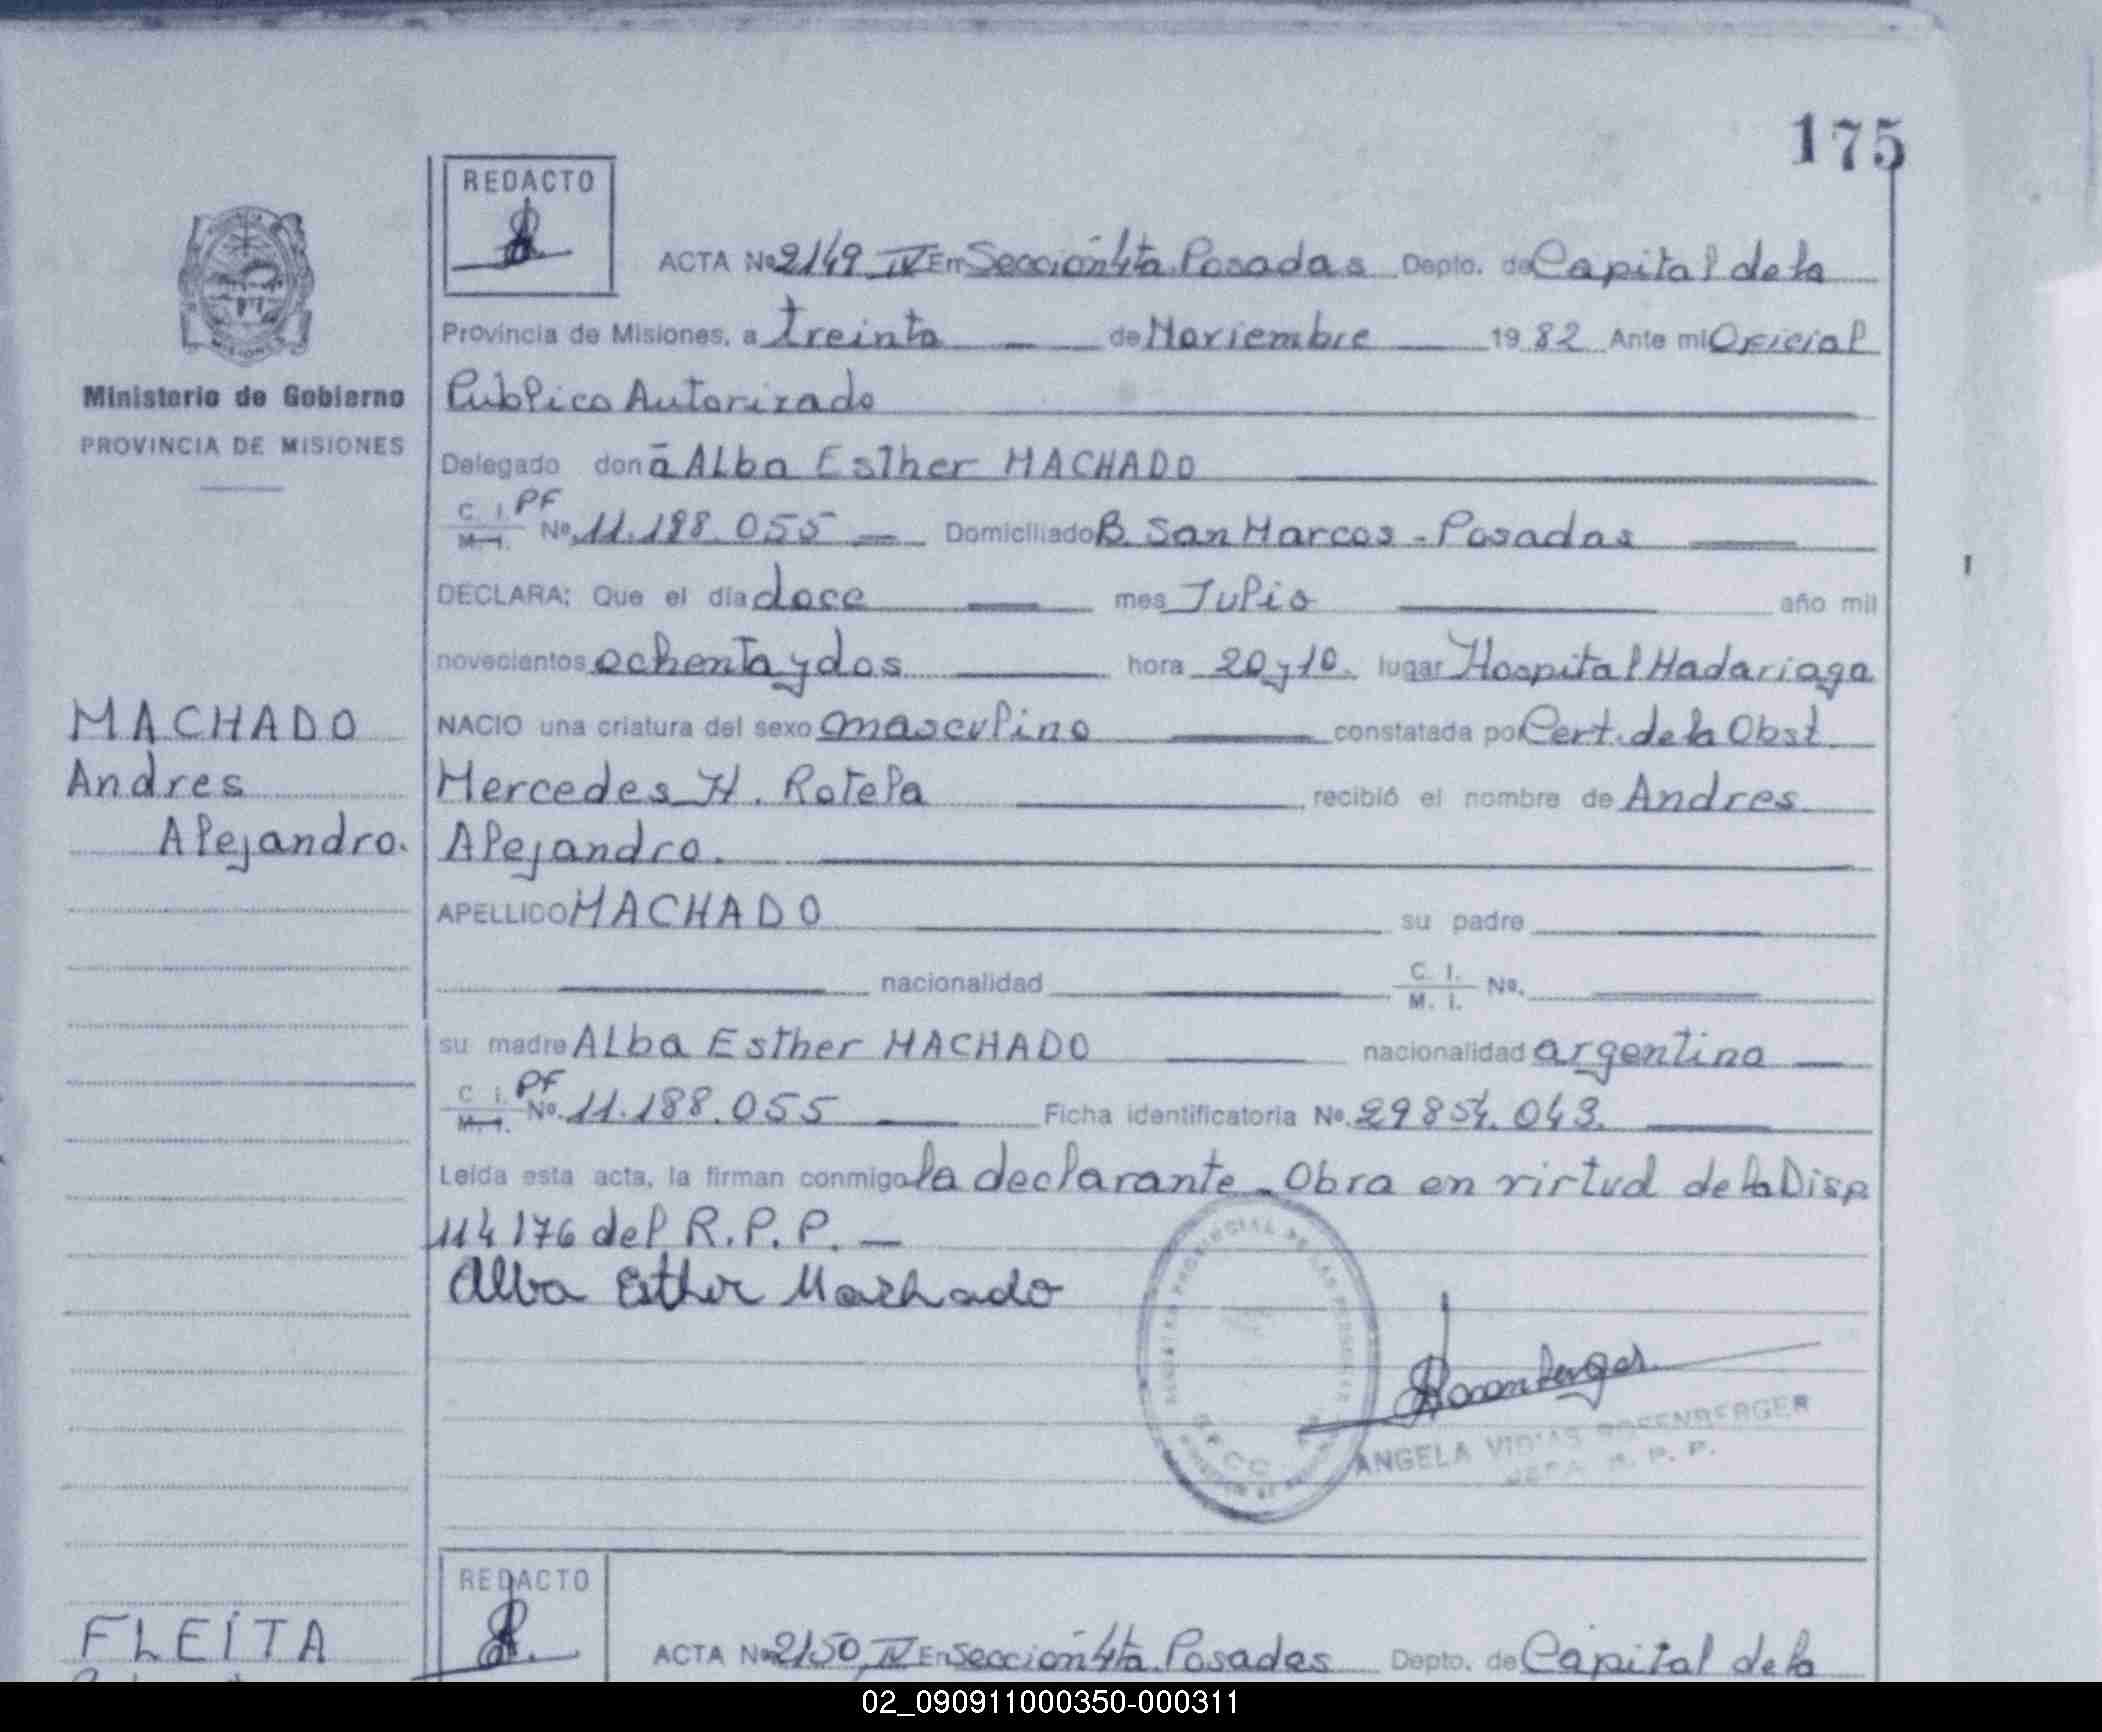 175
REDACTO
ACTA Nº 2149 IV En Sección 4ta. Posadas Depto. de Capital de la
Provincia de Misiones, a treinta de Noviembre 1982 Ante mi Oficial
Ministerio de Gobierno
Publico Autorizado
PROVINCIA DE MISIONES
Delegado don a Alba Esther MACHADO
C. I. PF
M. I. Nº. 11.188.055 Domiciliado B. San Marcos - Posadas
DECLARA: Que el día doce mes Julio año mil
novecientos ochenta y dos hora 20 y 10. lugar Hospital Madariaga
MACHADO
NACIO una criatura del sexo masculino constatada por Cert. de la Obst
Andres
Mercedes H. Rotela, recibió el nombre de Andres
Alejandro.
Alejandro.
APELLIDO MACHADO su padre
nacionalidad C. I. M. I. Nº.
su madre Alba Esther MACHADO nacionalidad argentina
C. I. PF
M. I. Nº. 11.188.055 Ficha identificatoria Nº. 29854.043.
Leída esta acta, la firman conmigo la declarante. Obra en virtud de la Disp
114176 del R.P.P.
Alba Esther Machado
ANGELA ROSENBERGER
JEFA R. P. P.
REDACTO
FLEÍTA
ACTA Nº 2150 IV En Sección 4ta. Posadas Depto. de Capital de la
02_090911000350-000311